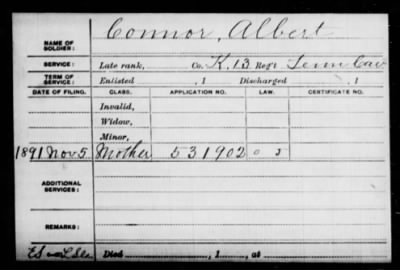 Connor, Albert
NAME OF SOLDIER:
SERVICE: Late rank, Co. K, 13 Reg't Tenn Cav
TERM OF SERVICE: Enlisted , 1 Discharged , 1
DATE OF FILING. CLASS. APPLICATION NO. LAW. CERTIFICATE NO.
Invalid,
Widow,
Minor,
1891 Nov 5 Mother 531902
ADDITIONAL SERVICES:
REMARKS:
Died , 1 , at